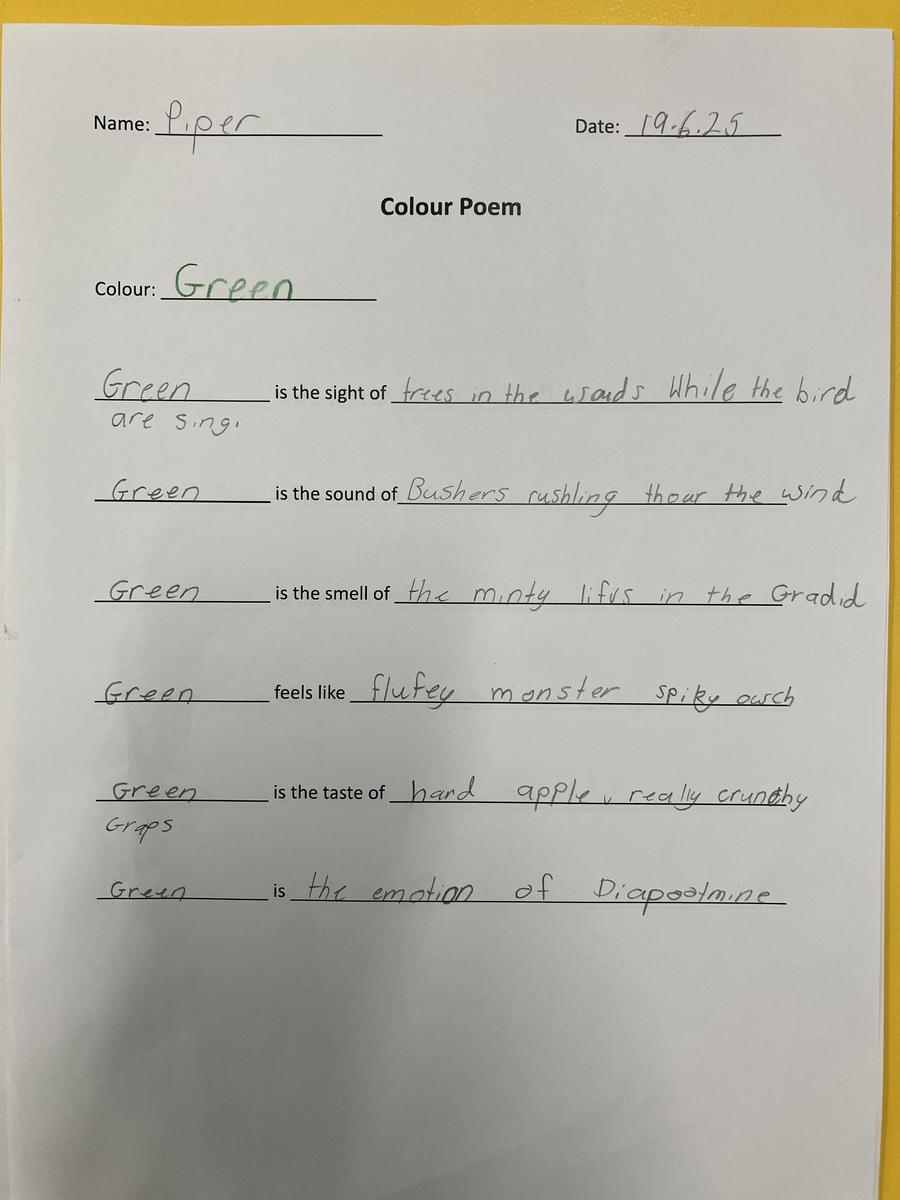 Name: Piper Date: 19.6.25
Colour Poem
Colour: Green
Green is the sight of trees in the woads While the bird
are sing.
Green is the sound of Bushers rushling thour the wind
Green is the smell of the minty lifvs in the Gradid
Green feels like flufey monster spiky owch
Green is the taste of hard apple, really crunchy
Graps
Green is the emotion of Diapoatmine